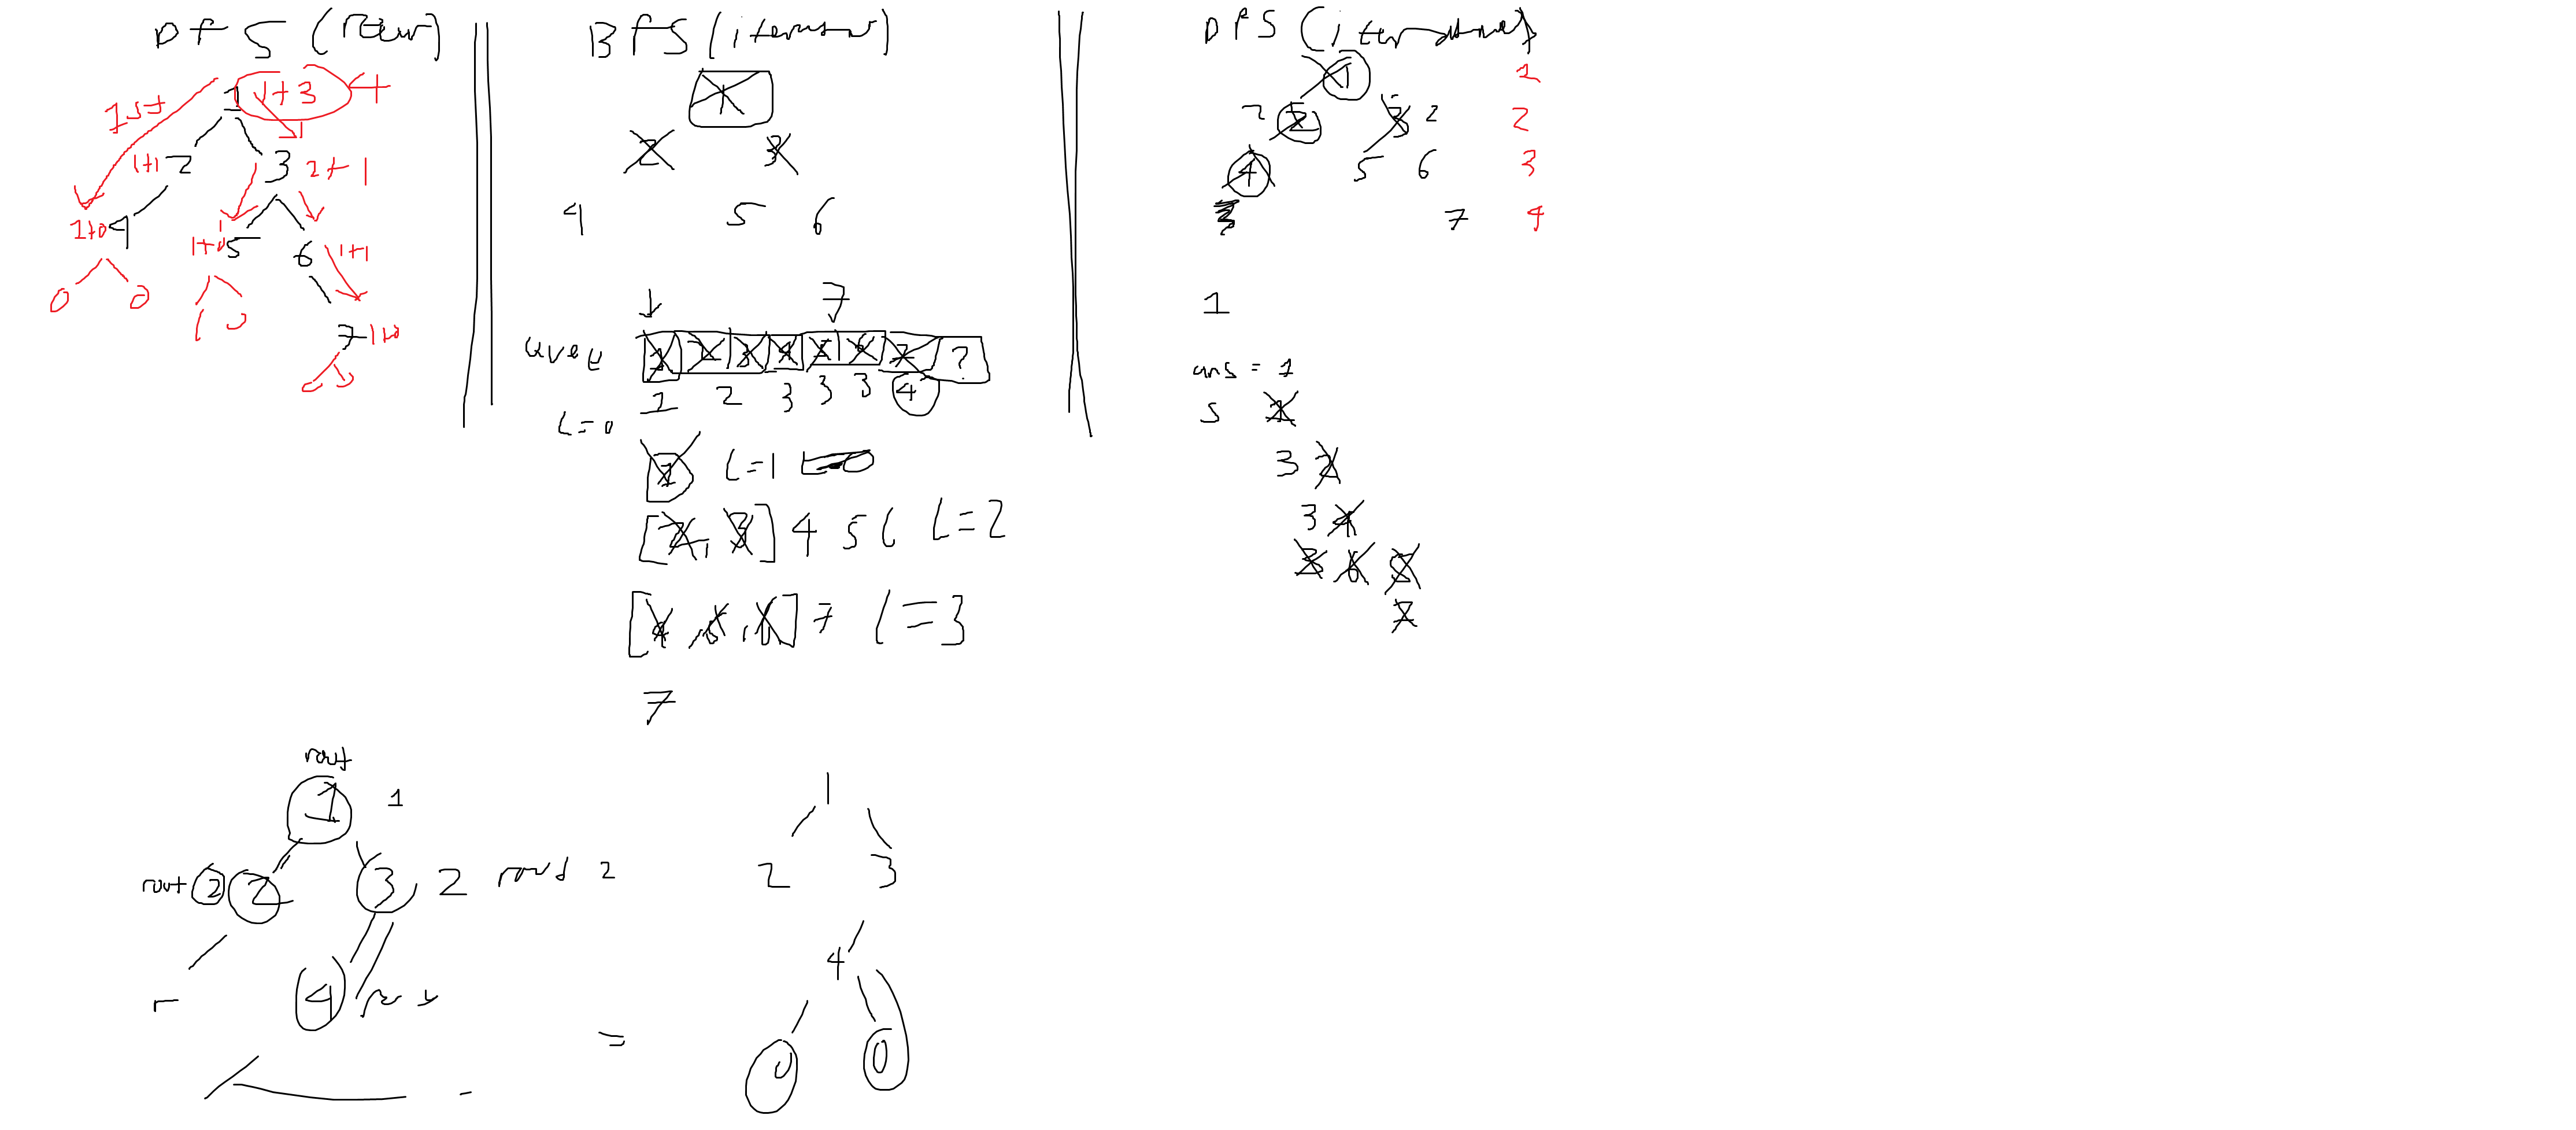 DFS (recur)
1 1+3 4
1st
1+1 2 3 2+1
1+0 4 1+0 5 6 1+1
0 0
7 1+0
BFS (iterson)
1
2 3
4 5 6
7
1 2 3 4 5 6 7 ?
1 2 3 3 3 4
L=0
1 L=1
[2, 3] 4 5 6 L=2
[4, 5, 6] 7 L=3
7
DFS (
1 1
2 2 3 2 2
4 5 6 3
7 4
1
ans = 1
S 1
3 2
3 4
3 6 5
7
root
1 1
root 2 2 3 2 2
4
1
2 3
4
=
0 0